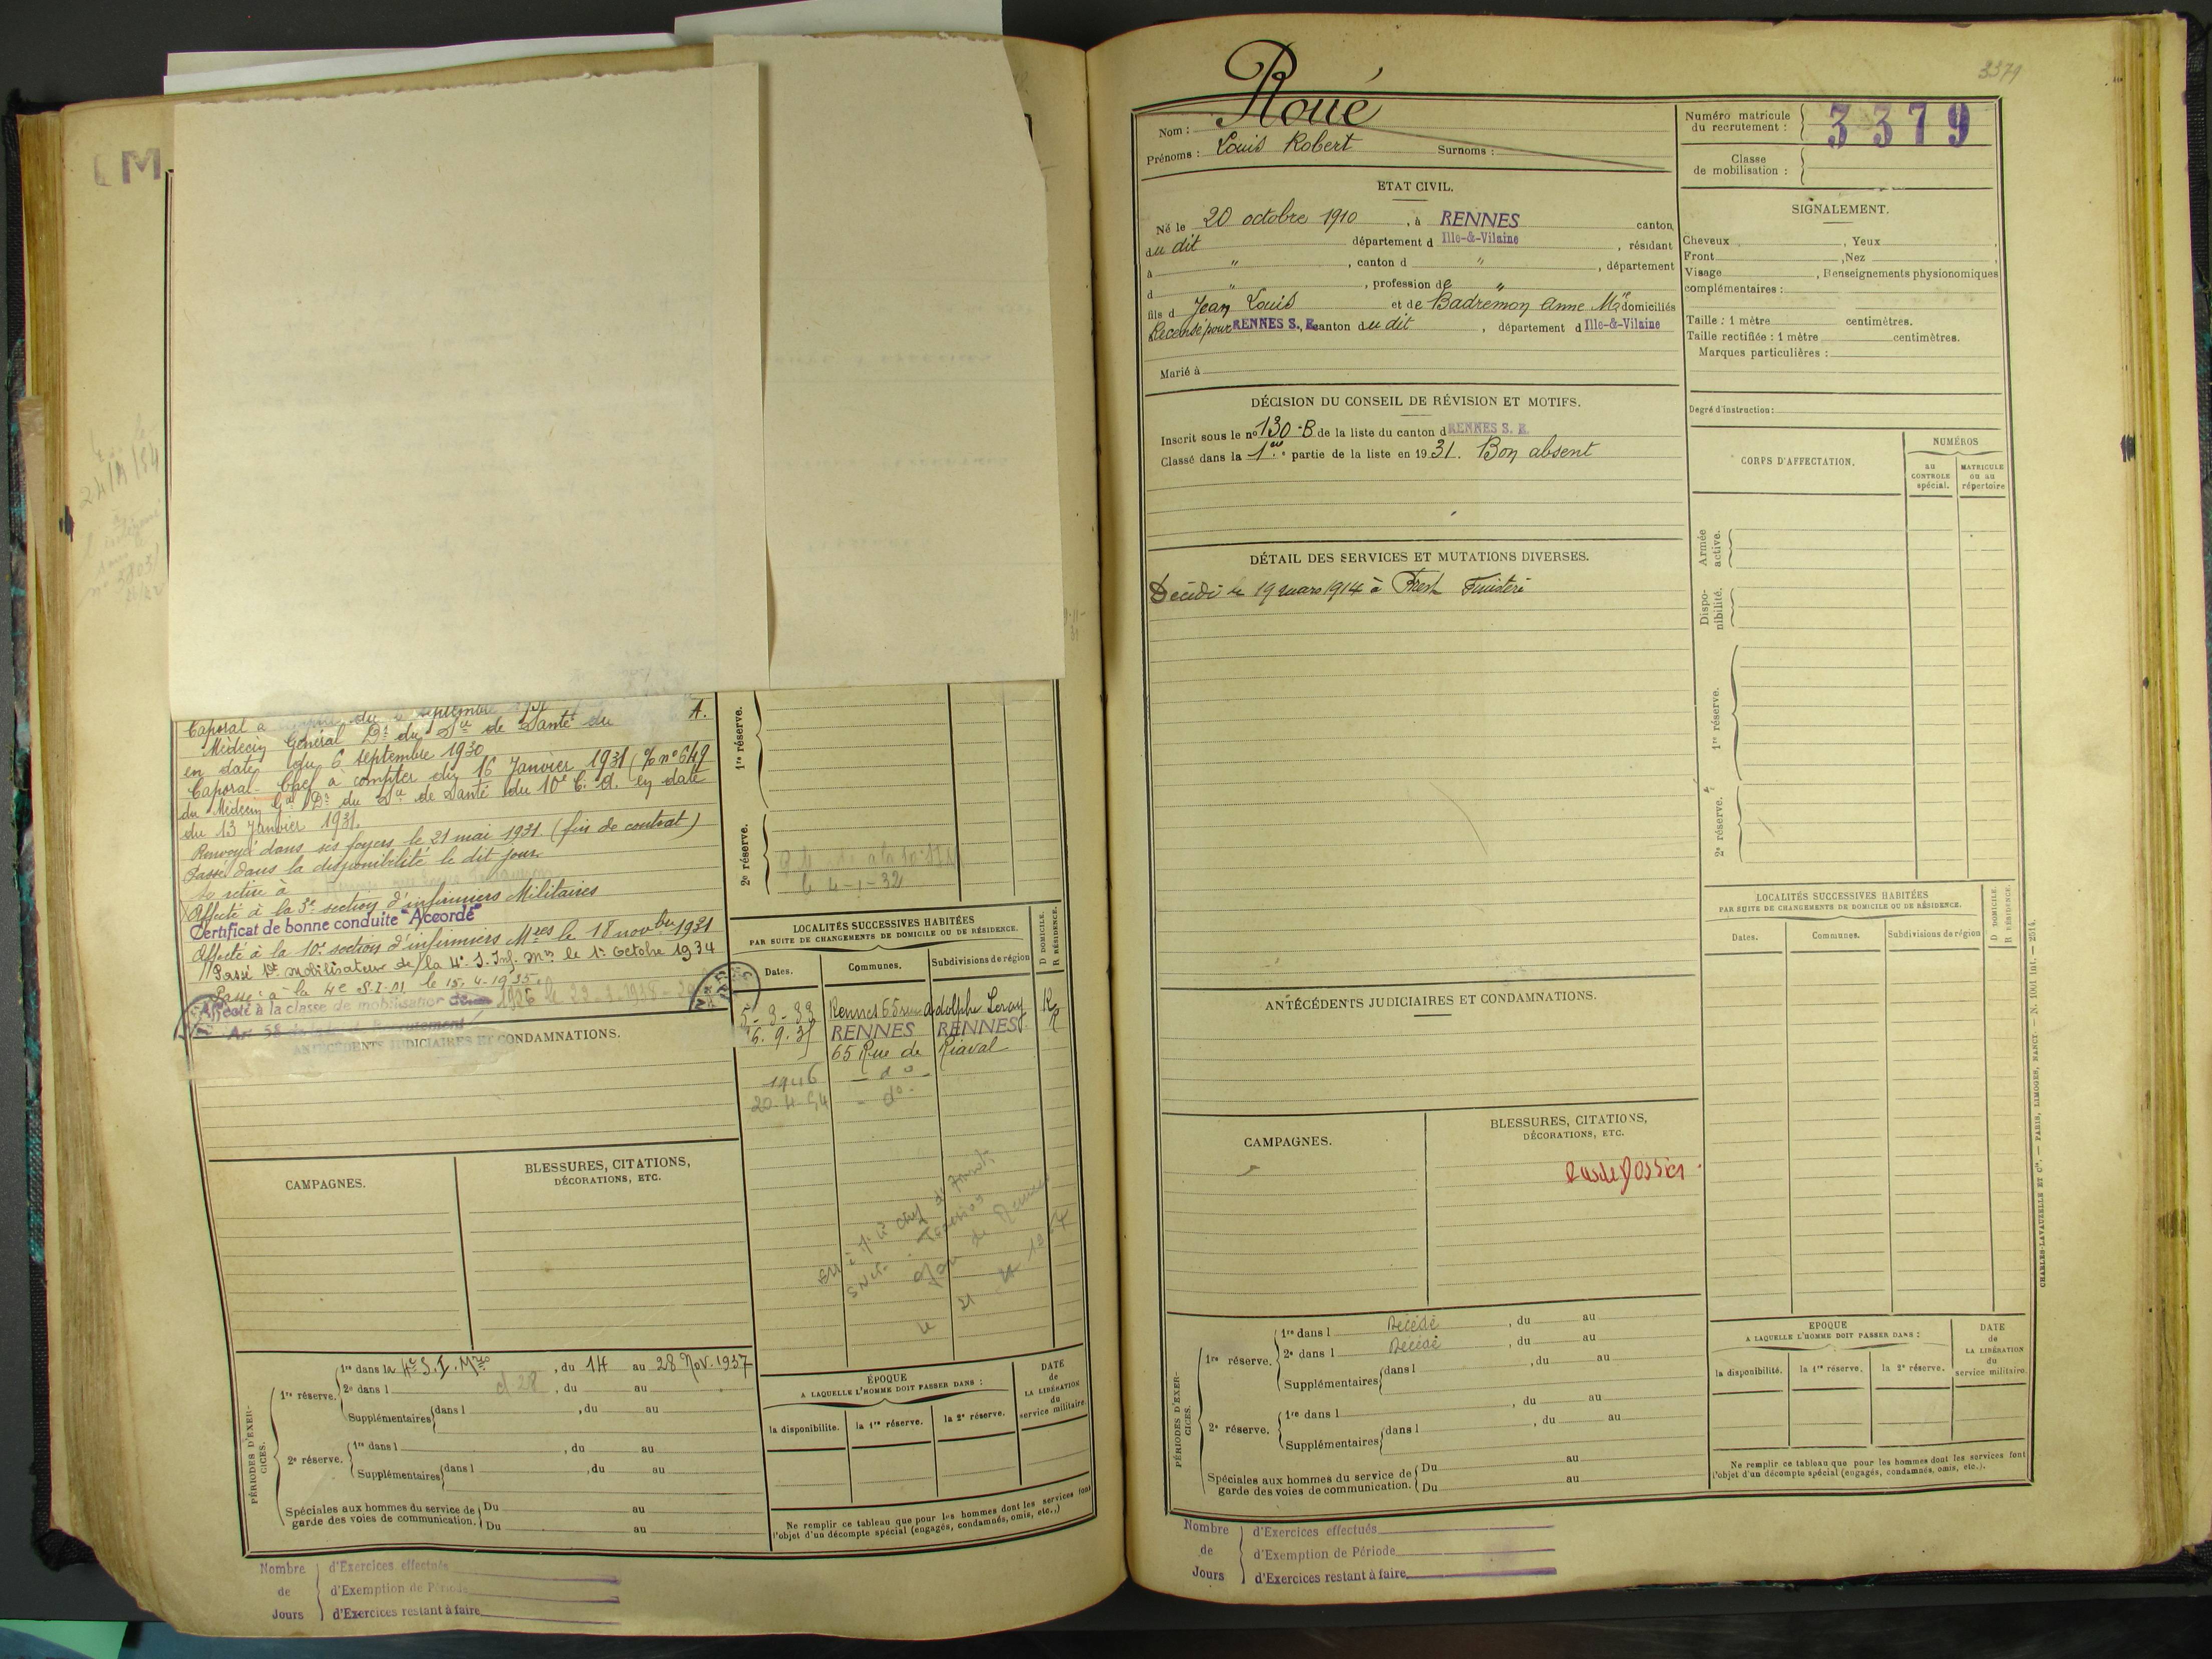 M
24/4/54
Caporal à compter du septembre
A.
Médecin Général Dr du Sce de Santé du
en date du 6 septembre 1930
Caporal-Chef à compter du 16 Janvier 1931 (% n° 649
du Médecin Gal Dr du Sce de Santé du 10e C. A. en date
du 13 Janvier 1931.
Renvoyé dans ses foyers le 21 mai 1931. (fin de contrat)
Passé dans la disponibilité le dit jour.
Se retire à
Affecté à la 3e section d'infirmiers Militaires
Certificat de bonne conduite "Accordé"
Affecté à la 10e section d'infirmiers Mres le 18 novbre 1931
Passé Ct mobilisateur de la 4e S. Inf. Mres le 1er Octobre 1934
Passé à la 4e S.I.M. le 15-4-1935.
Affecté à la classe de mobilisation de 1926 le
Art 58
ANTÉCÉDENTS JUDICIAIRES ET CONDAMNATIONS.
CAMPAGNES.
BLESSURES, CITATIONS,
DÉCORATIONS, ETC.
1re réserve.
2e réserve.
le 4-1-32
LOCALITÉS SUCCESSIVES HABITÉES
PAR SUITE DE CHANGEMENTS DE DOMICILE OU DE RÉSIDENCE.
D DOMICILE.
R RÉSIDENCE.
Dates.
Communes.
Subdivisions de région
5-3-33 Rennes 65 rue Adolphe Leray R
6.9.35 RENNES RENNES R
65 Rue de Riaval
1946 - do -
20-4-54 - do -
PÉRIODES D'EXERCICES.
1re réserve.
1re dans la 4e S.I.Mres, du 14 au 28 Nov. 1937
2e dans l cl 28, du au
Supplémentaires dans l , du au
2e réserve.
1re dans l , du au
Supplémentaires dans l , du au
Spéciales aux hommes du service de garde des voies de communication.
Du au
Du au
ÉPOQUE
A LAQUELLE L'HOMME DOIT PASSER DANS :
la disponibilité.
la 1re réserve.
la 2e réserve.
DATE
de
LA LIBÉRATION
du
service militaire
Ne remplir ce tableau que pour les hommes dont les services font
l'objet d'un décompte spécial (engagés, condamnés, omis, etc..)
Nombre de Jours
d'Exercices effectués
d'Exemption de Période
d'Exercices restant à faire
3379
Nom : Roué
Prénoms : Louis Robert Surnoms :
Numéro matricule
du recrutement : 3379
Classe
de mobilisation :
ETAT CIVIL.
Né le 20 octobre 1910, à RENNES canton
du dit département d Ille-&-Vilaine, résidant
à " , canton d " , département
d " , profession de "
fils d Jean Louis et de Badremon Anne Mie domiciliés
Recensé pour RENNES S. E. canton du dit, département d Ille-&-Vilaine
Marié à
SIGNALEMENT.
Cheveux , Yeux ,
Front , Nez ,
Visage , Renseignements physionomiques
complémentaires :
Taille : 1 mètre centimètres.
Taille rectifiée : 1 mètre centimètres.
Marques particulières :
Degré d'instruction :
DÉCISION DU CONSEIL DE RÉVISION ET MOTIFS.
Inscrit sous le no 130-B de la liste du canton d RENNES S. E.
Classé dans la 1ere partie de la liste en 1931. Bon absent
CORPS D'AFFECTATION.
NUMÉROS
au
CONTROLE
spécial.
MATRICULE
ou au
répertoire
Armée active.
Disponibilité.
1re réserve.
2e réserve.
DÉTAIL DES SERVICES ET MUTATIONS DIVERSES.
Décédé le 19 mars 1914 à Brest Finistère
LOCALITÉS SUCCESSIVES HABITÉES
PAR SUITE DE CHANGEMENTS DE DOMICILE OU DE RÉSIDENCE.
D DOMICILE.
R RÉSIDENCE.
Dates.
Communes.
Subdivisions de région
ANTÉCÉDENTS JUDICIAIRES ET CONDAMNATIONS.
CAMPAGNES.
BLESSURES, CITATIONS,
DÉCORATIONS, ETC.
Pas de Dossier.
PÉRIODES D'EXERCICES.
1re réserve.
1re dans l Décédé , du au
2e dans l Décédé , du au
Supplémentaires dans l , du au
2e réserve.
1re dans l , du au
Supplémentaires dans l , du au
Spéciales aux hommes du service de garde des voies de communication.
Du au
Du au
EPOQUE
A LAQUELLE L'HOMME DOIT PASSER DANS :
la disponibilité.
la 1re réserve.
la 2e réserve.
DATE
de
LA LIBÉRATION
du
service militaire.
Ne remplir ce tableau que pour les hommes dont les services font
l'objet d'un décompte spécial (engagés, condamnés, omis, etc.).
CHARLES-LAVAUZELLE ET Cie. — PARIS, LIMOGES, NANCY. — N. 1061 int. — 2514.
Nombre de Jours
d'Exercices effectués
d'Exemption de Période
d'Exercices restant à faire